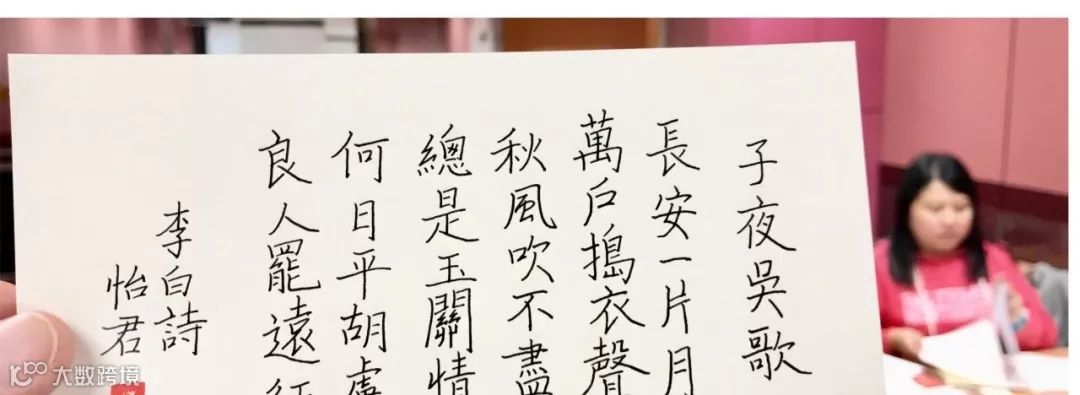 子夜吳歌
長安一片月
萬戶搗衣聲
秋風吹不盡
總是玉關情
何日平胡虜
良人罷遠征
李白詩
怡君
大数跨境